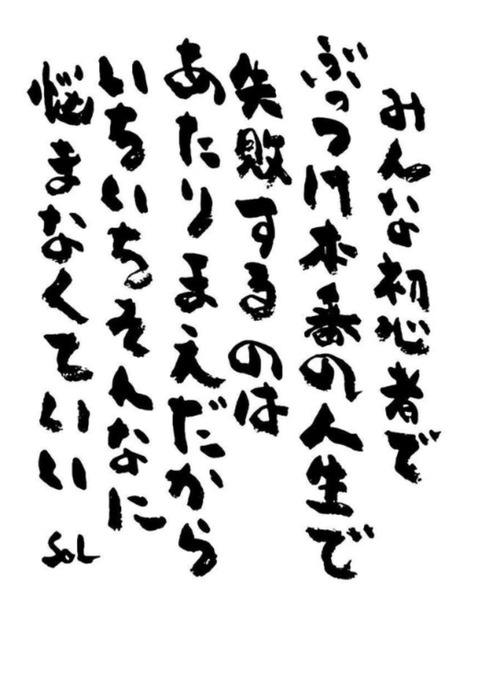 みんな初心者で
ぶっつけ本番の人生で
失敗するのは
あたりまえだから
いちいちそんなに
悩まなくていい
SOL